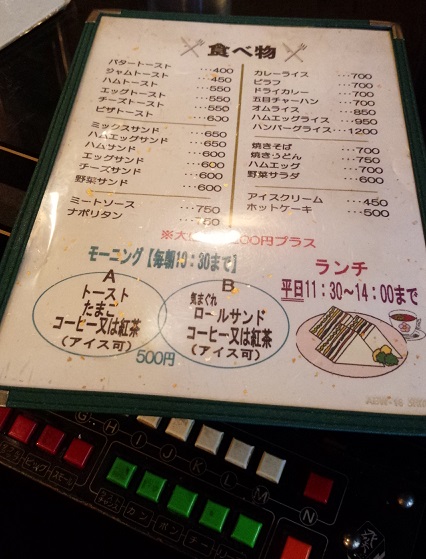 食べ物
バタートースト ・・・400
ジャムトースト ・・・450
ハムトースト ・・・550
エッグトースト ・・・550
チーズトースト ・・・550
ピザトースト ・・・600
ミックスサンド ・・・650
ハムエッグサンド ・・・650
ハムサンド ・・・600
エッグサンド ・・・600
チーズサンド ・・・600
野菜サンド ・・・600
ミートソース ・・・750
ナポリタン
カレーライス ・・・700
ピラフ ・・・700
ドライカレー ・・・700
五目チャーハン ・・・700
オムライス ・・・850
ハムエッグライス ・・・950
ハンバーグライス ・・・1200
焼きそば ・・・700
焼きうどん ・・・750
ハムエッグ ・・・700
野菜サラダ ・・・600
アイスクリーム ・・・450
ホットケーキ ・・・500
※大 00円プラス
モーニング【毎朝10:30まで】
A
トースト
たまご
コーヒー又は紅茶
(アイス可)
B
気まぐれ
ロールサンド
コーヒー又は紅茶
(アイス可)
500円
ランチ
平日11:30〜14:00まで
G
H
I
J
K
L
M
N
カン
ポン
チー